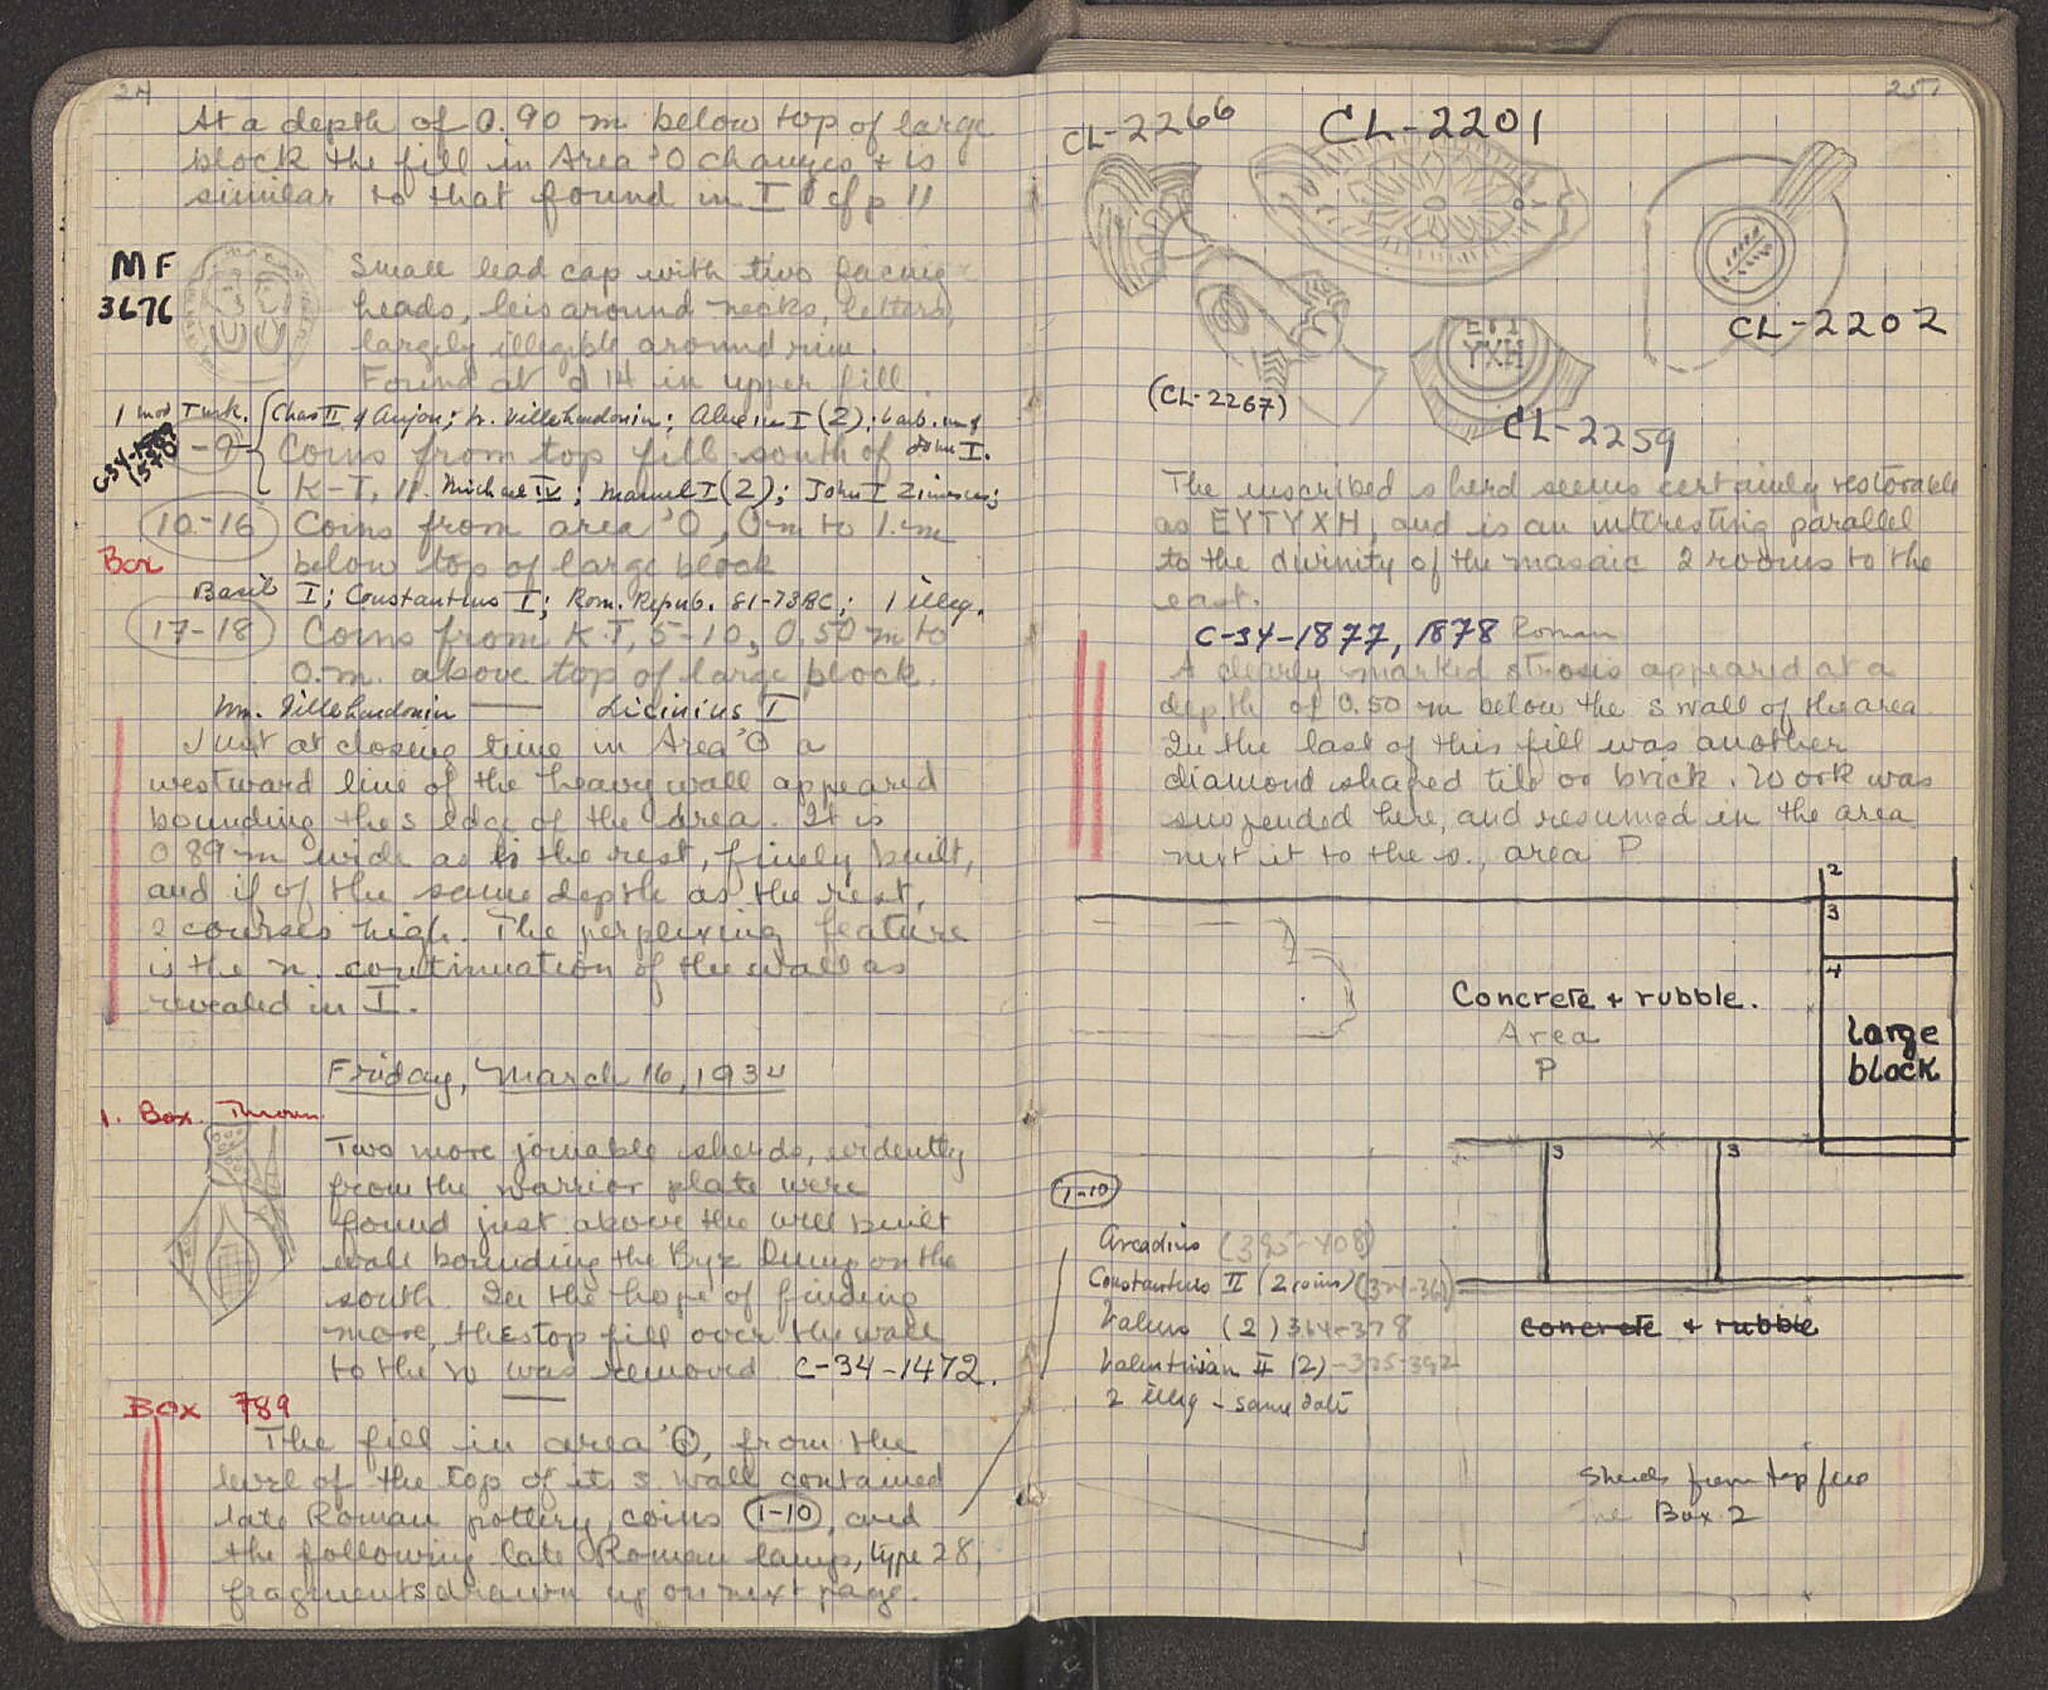 24
At a depth of 0.90 m below top of large
block the fill in Area 'O changes + is
similar to that found in I cf p 11
MF
3676
Small lead cap with two facing
heads, leis around necks, letters,
largely illegible around rim.
Found at d 14 in upper fill.
1 mod Turk. Chas II of Anjou; W. Villehardouin; Alexius I (2); barb. im of
John I.
-9 Coins from top fill south of
K-T, 11. Michael IV; Manuel I (2); John I Zimisces;
10-16 Coins from area 'O, 0 m to 1. m
Box below top of large block
Basil I; Constantius I; Rom. Repub. 81-73BC; 1 illeg.
17-18 Coins from K-T, 5-10, 0.50 m to
0. m. above top of large block.
Wm. Villehardouin — Licinius I
Just at closing time in Area 'O a
westward line of the heavy wall appeared
bounding the s edge of the area. It is
0 89 m wide as is the rest, finely built,
and if of the same depth as the rest,
2 courses high. The perplexing feature
is the n. continuation of the wall as
revealed in I.
Friday, March 16, 1934
1. Box. Thrown
Two more joinable sherds, evidently
from the warrior plate were
found just above the well built
wall bounding the Byz dump on the
south. In the hope of finding
more, the top fill over the wall
to the w was removed C-34-1472.
Box 789
The fill in area 'O, from the
level of the top of its s wall contained
late Roman pottery, coins 1-10, and
the following late Roman lamp, type 28,
fragments drawn up on next page.
25
CL-2266
CL-2201
CL-2202
(CL-2267)
ΕΥΤ
ΥΧΗ
CL-2259
The inscribed sherd seems certainly restorable
as EYTYXH, and is an interesting parallel
to the divinity of the mosaic 2 rooms to the
east.
C-34-1877, 1878 Roman
A clearly marked strosis appeared at a
depth of 0.50 m below the s wall of the area
In the last of this fill was another
diamond shaped tile or brick. Work was
suspended here, and resumed in the area
next it to the s., area P
2
3
4
Concrete + rubble.
Area
P
large
block
3 3
1-10
Arcadius (395-408)
Constantius II (2 coins) (324-361)
Valens (2) 364-378
Valentinian II (2) - 375-392
2 illeg - same date
concrete + rubble
Sherds from top fill
Box 2